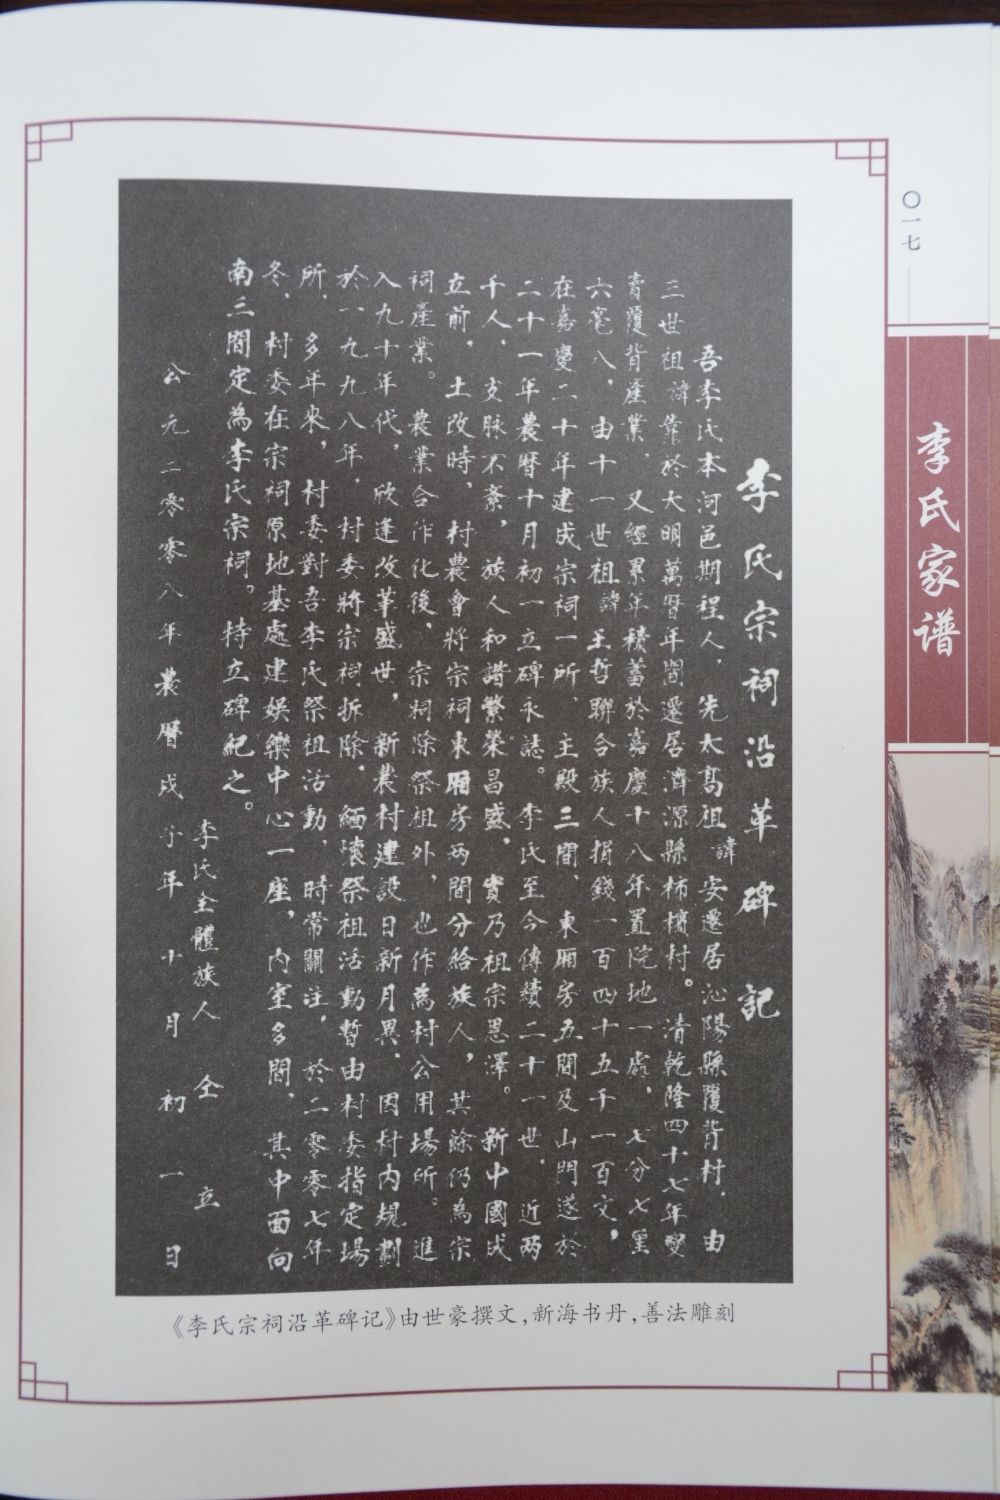 〇一七
李氏家谱
李氏宗祠沿革碑記
吾李氏本河邑期程人，先太髙祖諱安遷居沁陽縣覆背村．由
三世祖諱於大明萬曆年間遷居濟源縣柿檳村。清乾隆四十七年變
賣覆背產業，又經累年積蓄於嘉慶十八年置院地一處，七分七厘
六毫八，由十一世祖諱王哲聯合族人捐錢一百四十五千一百文，
在嘉慶二十年建成宗祠一所，主殿三間、東厢房五間及山門遂於
二十一年農曆十月初一立碑永誌。李氏至今傳續二十一世，近两
千人，支脉不紊，族人和諧繁榮昌盛，實乃祖宗恩澤。新中國成
立前，土改時，村農會將宗祠東厢房两間分給族人，其餘仍為宗
祠產業。農業合作化後，宗祠除祭祖外，也作為村公用場所。進
入九十年代，欣逢改革盛世，新農村建設日新月異．因村内規劃
於一九九八年，村委將宗祠拆除．緬懷祭祖活動暫由村委指定場
所．多年來，村委對吾李氏祭祖活動，時常關注．於二零零七年
冬．村委在宗祠原地基處建娛樂中心一座，内室多間，其中面向
南三間定為李氏宗祠。特立碑紀之。
李氏全體族人 仝 立
公元二零零八年農曆戊子年十月初一日
《李氏宗祠沿革碑记》由世豪撰文，新海书丹，善法雕刻